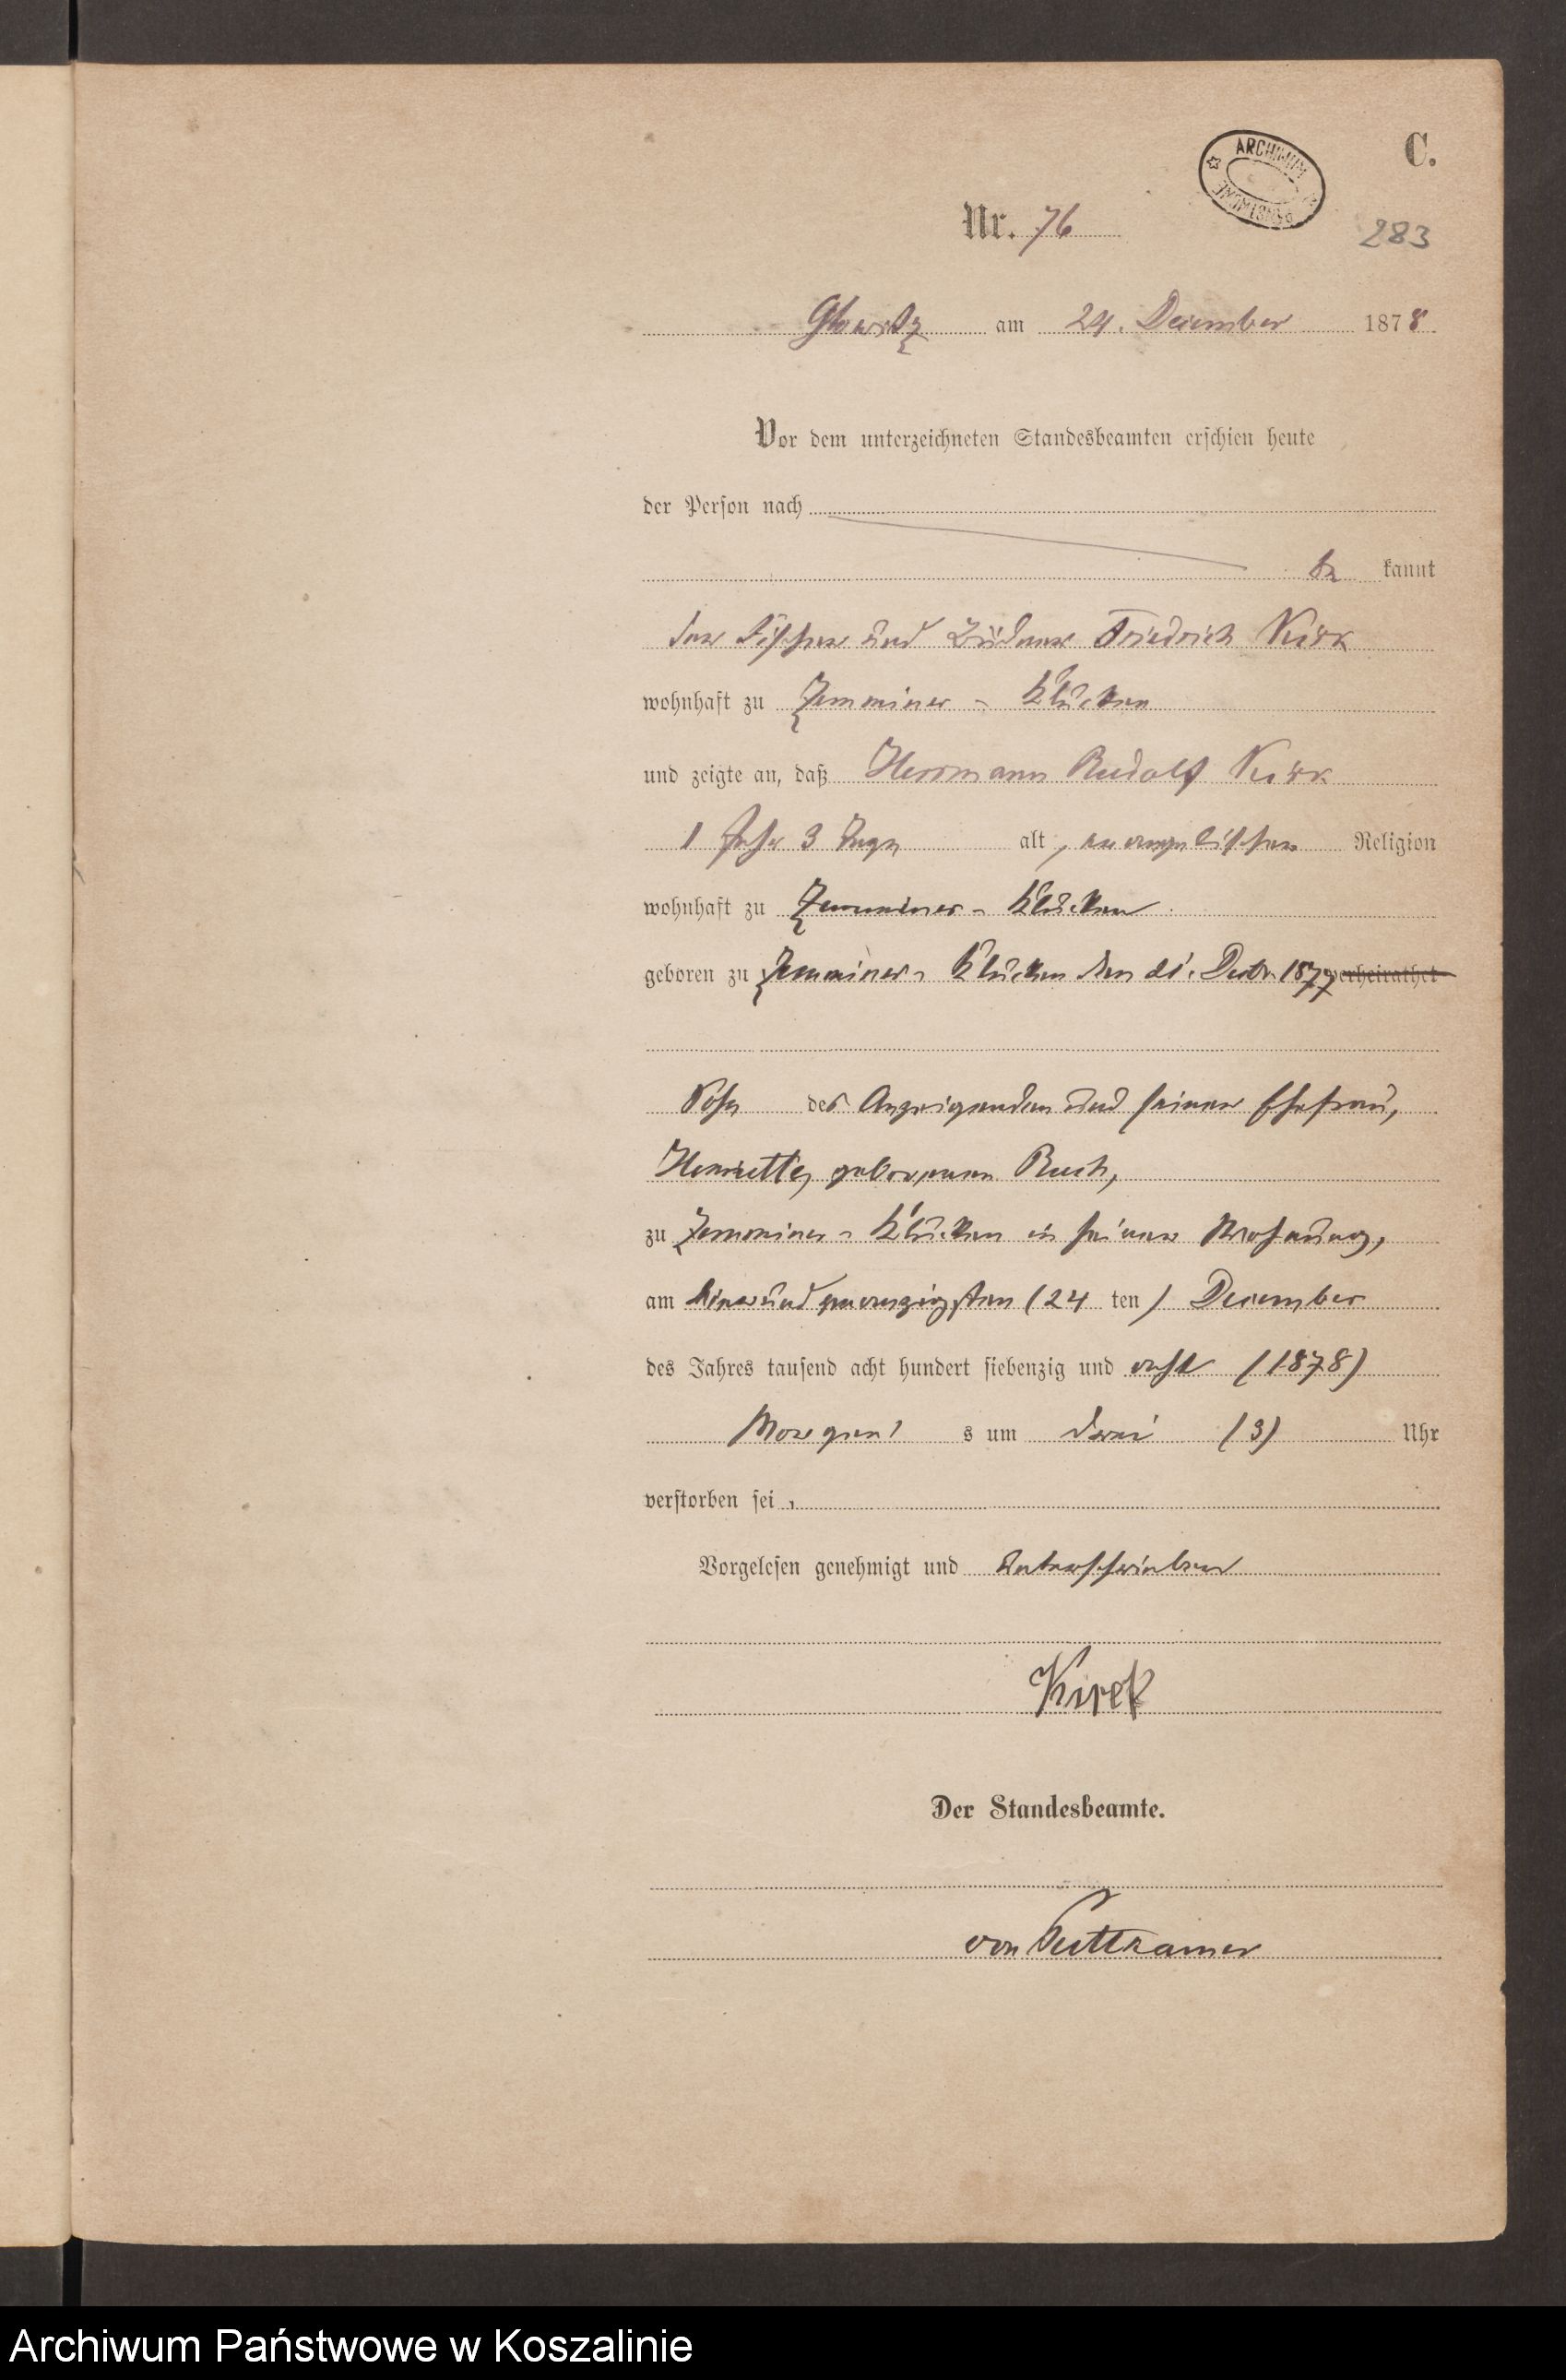 C.
ARCHIWUM
Nr. 76
283
Glowitz am 24. December 1878
Vor dem unterzeichneten Standesbeamten erschien heute
der Person nach
be kannt
der Fischer und Büdner Friedrich Kirk
wohnhaft zu Zemminer - Klücken
und zeigte an, daß Herrmann Rudolf Kirk
1 Jahr 3 Tage alt, evangelischer Religion
wohnhaft zu Zemminer - Klücken
geboren zu Zemminer - Klücken den 21. Decbr. 1877 verheirathet
Sohn des Anzeigenden und seiner Ehefrau,
Henriette, geborenen Ruch,
zu Zemminer - Klücken in seiner Wohnung,
am vierundzwanzigsten (24 ten) December
des Jahres tausend acht hundert siebenzig und acht (1878)
Morgen s um drei (3) Uhr
verstorben sei.
Vorgelesen genehmigt und unterschrieben
Kirck
Der Standesbeamte.
von Puttkamer
Archiwum Państwowe w Koszalinie